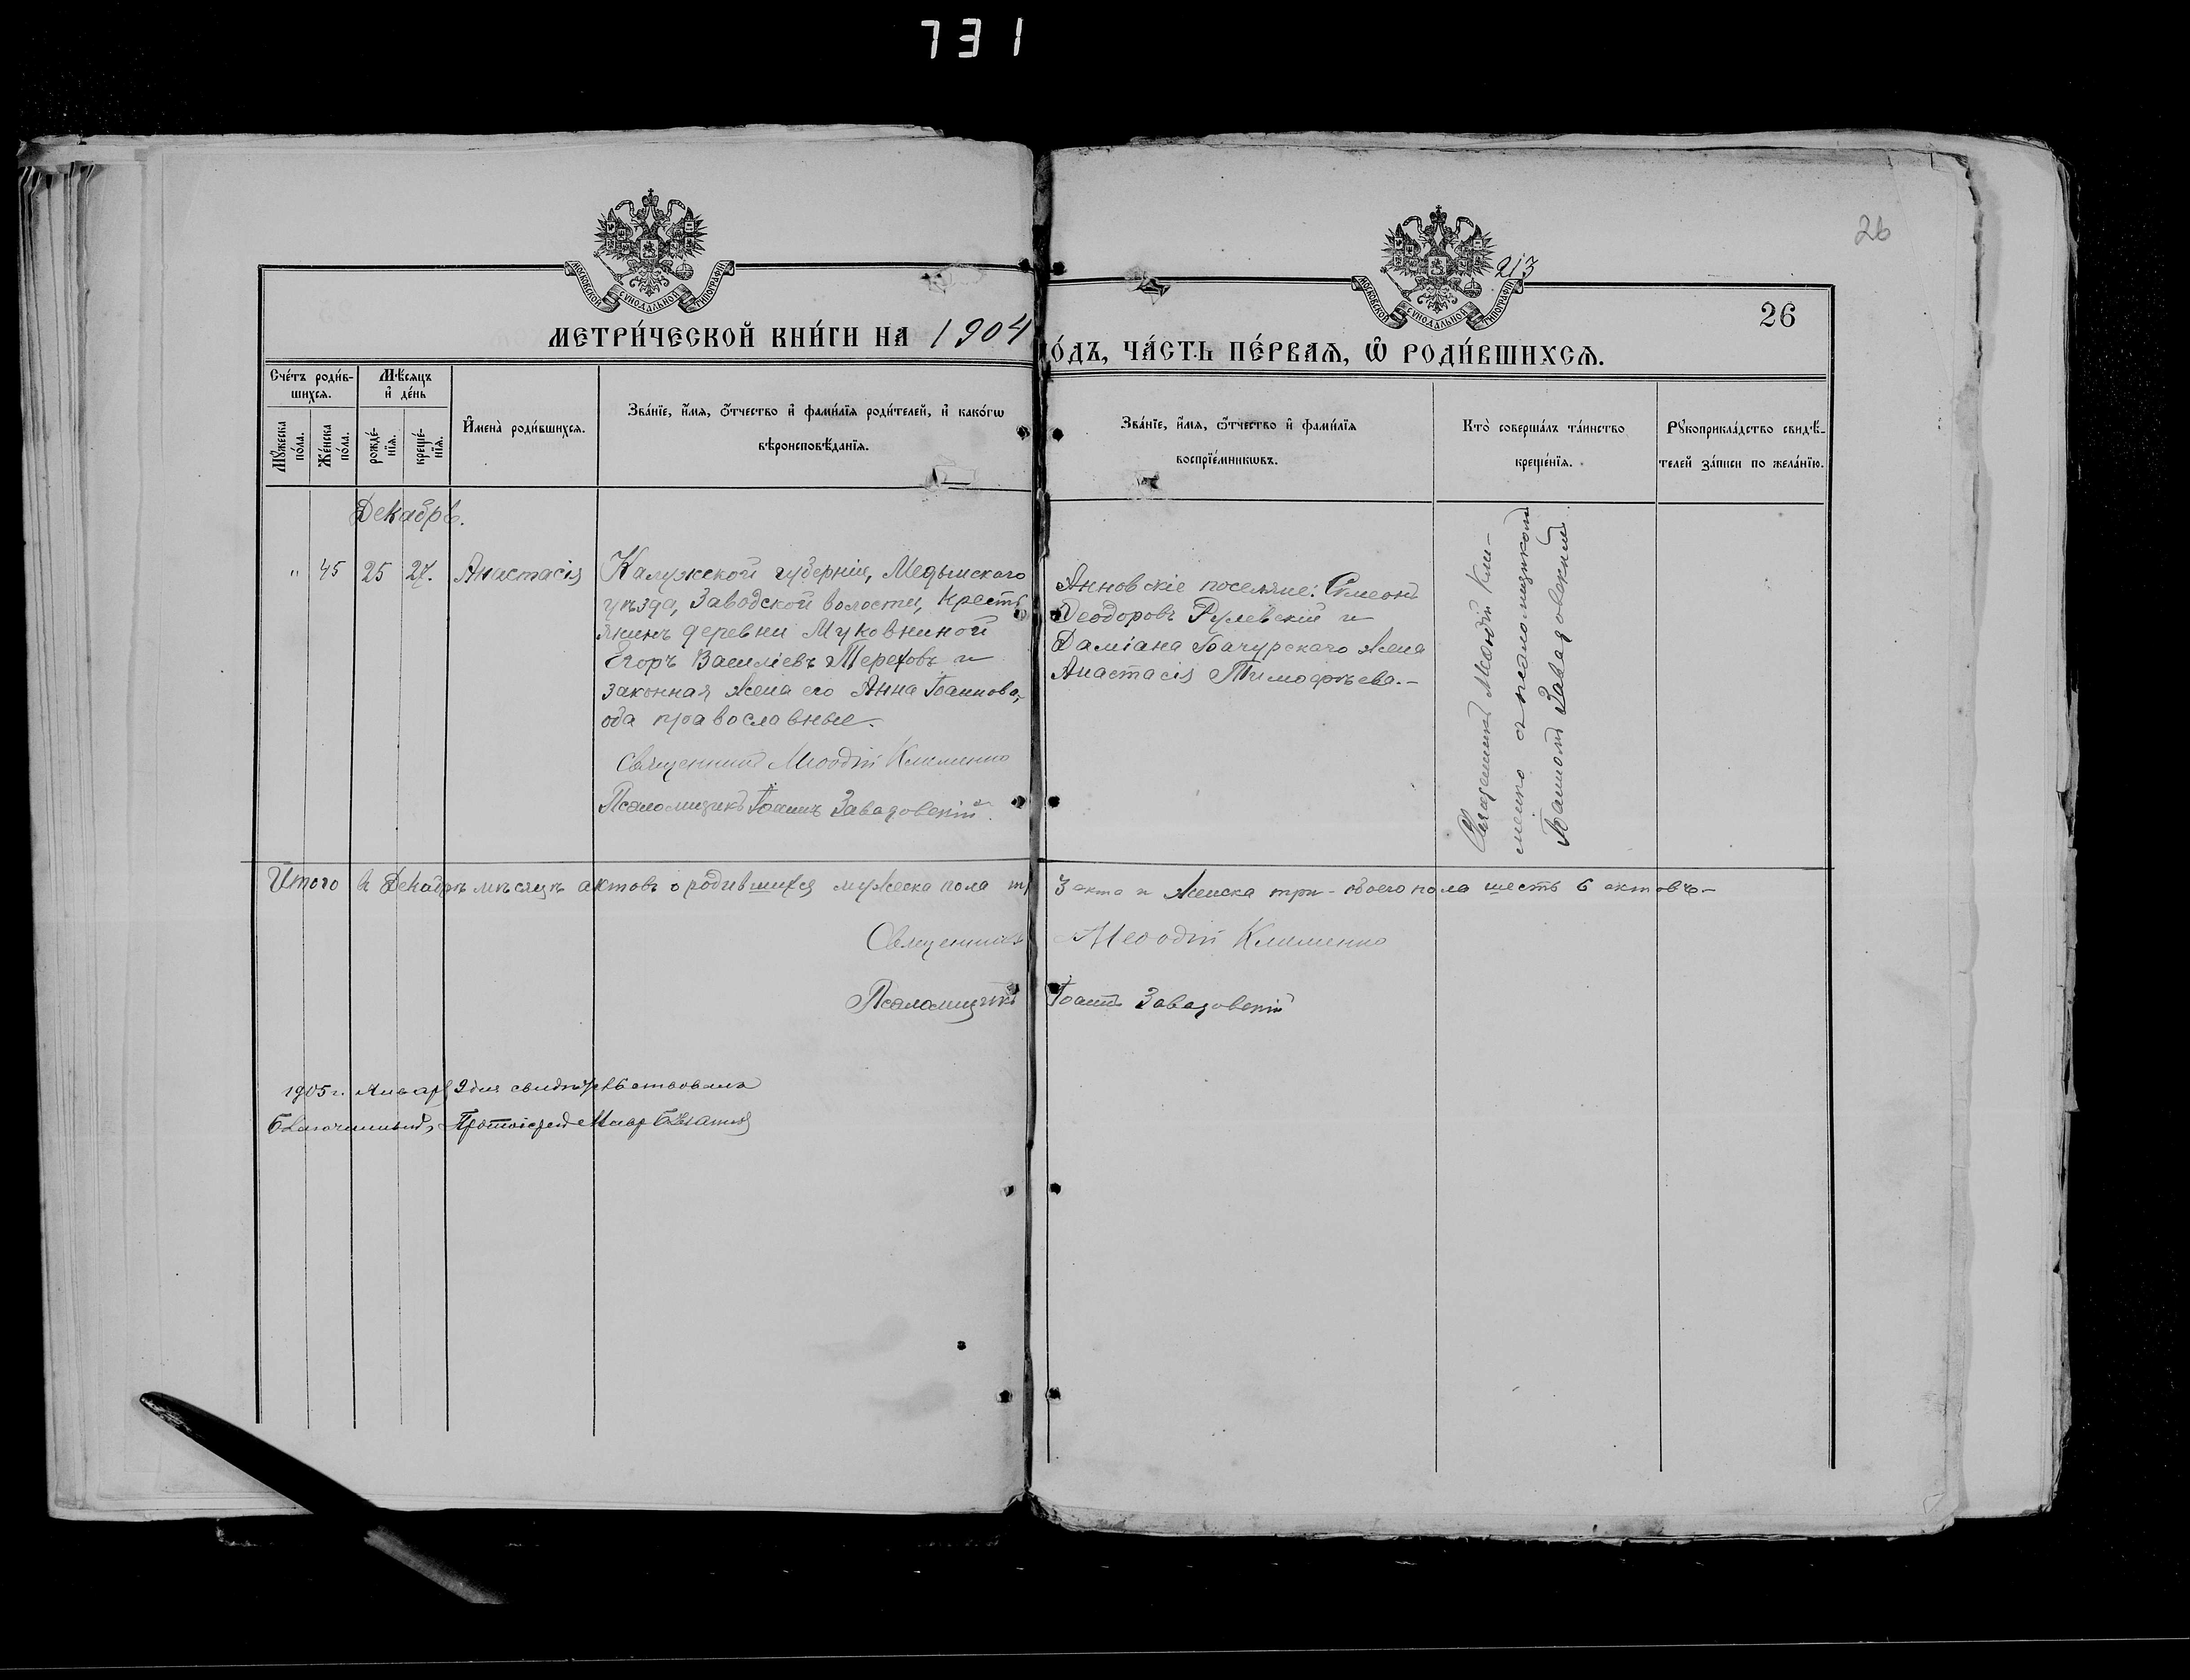 731
26
213
МОСКОВСКОЙ СѴНОДАЛЬНОЙ ТИПОГРАФІИ
МОСКОВСКОЙ СѴНОДАЛЬНОЙ ТИПОГРАФІИ
26
МЕТРИ́ЧЕСКОЙ КНИ́ГИ НА 1904
О́ДЪ, ЧА́СТЬ ПЕ́РВАѦ, Ѽ РОДИ́ВШИХСѦ.
Сче́тъ роди́в-
шихсѧ.
Мꙋ́жеска по́ла.
Же́нска по́ла.
Мѣ́сѧцъ
и҆ де́нь
рожде́-
нїѧ.
креще́-
нїѧ.
И҆мена̀ роди́вшихсѧ.
Зва́нїе, и҆́мѧ, ѻ҆́тчество и҆ фами́лїѧ роди́телей, и҆ како́гѡ
вѣроисповѣ́данїѧ.
Зва́нїе, и҆́мѧ, ѻ҆́тчество и҆ фами́лїѧ
воспрїе́мникѡвъ.
Кто̀ соверша́лъ та́инство
креще́нїѧ.
Рꙋкоприкла́дство свидѣ́-
телей за́писи по жела́нїю.
Декабрь.
" 45 25 27. Анастасія
Калужской губерніи, Медынскаго
уѣзда, Заводской волости, кресть
янинъ деревни Муковниной
Егоръ Василіевъ Тереховъ и
законная жена его Анна Іоаннова,
оба православные.
Священникъ Меѳодій Клименко
Псаломщикъ Іоаннъ Завадовскій.
Анновскіе поселяне: Симеонъ
Ѳеодоровъ Рулевскій и
Даміана Бачурскаго жена
Анастасія Тимофѣева.-
Священникъ Меѳодій Кли-
менко съ псаломщикомъ
Іоанномъ Завадовскимъ
Итого въ Декабрѣ мѣсяцѣ актовъ о родившихся мужеска пола тр 3 акта и женска три - обоего пола шесть 6 актовъ-
Священникъ Меѳодій Клименко
Псаломщикъ Іоаннъ Завадовскій
1905 г. Января 9 дня свидѣтельствовалъ
Благочинный, Протоіерей